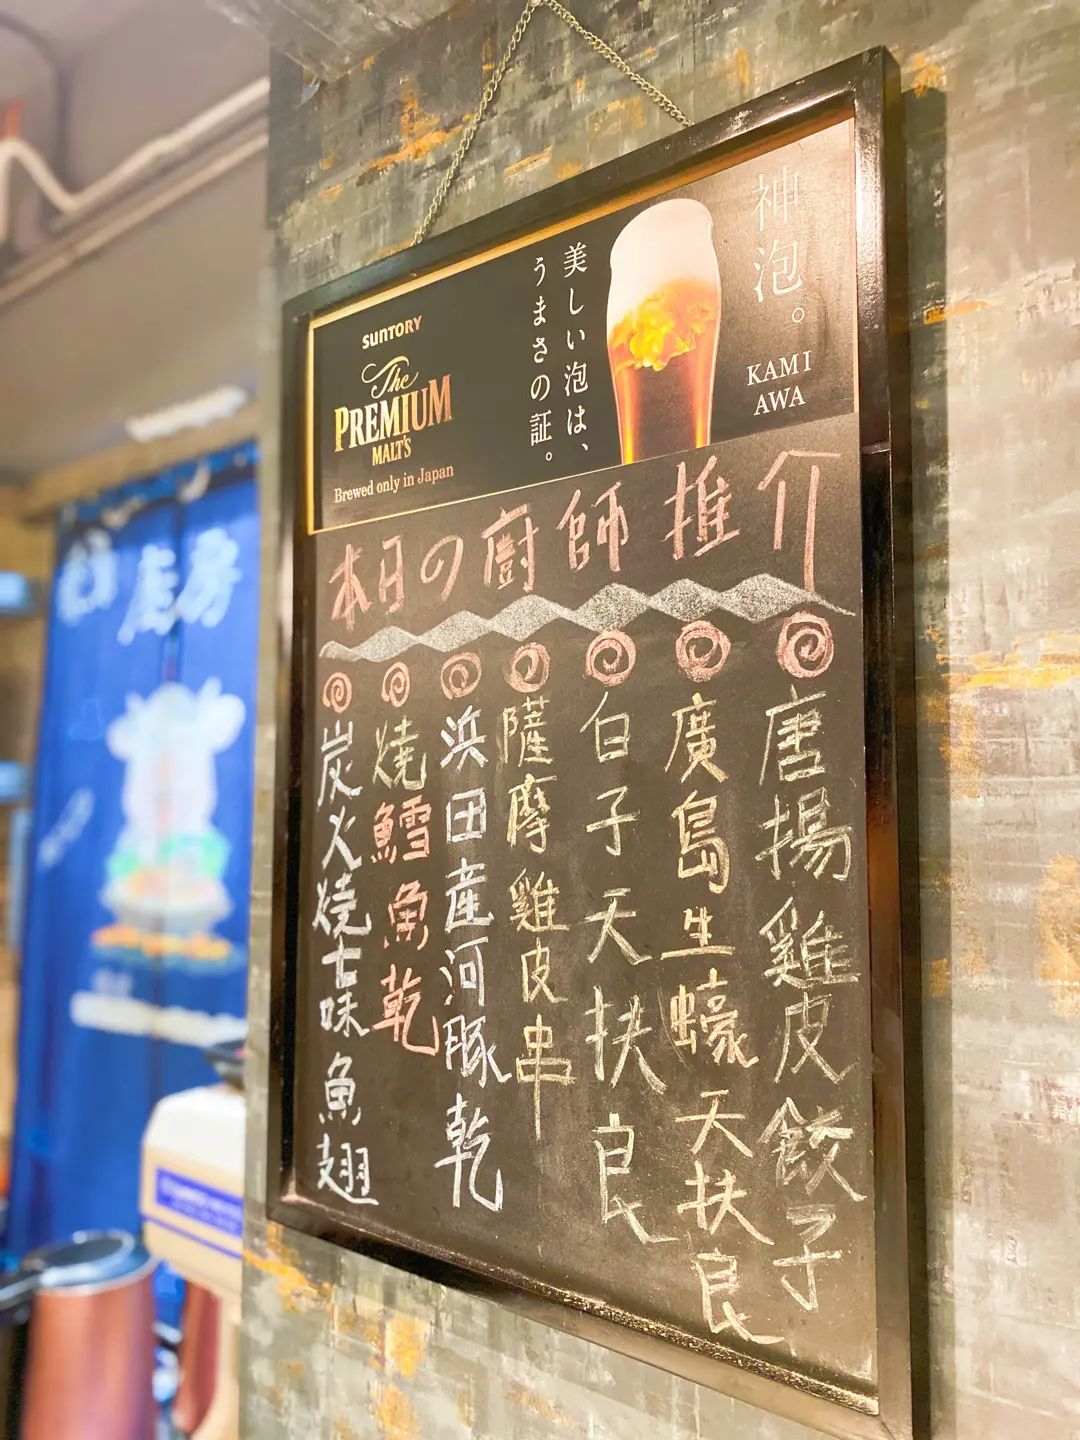 神泡。
KAMI
AWA
美しい泡は、
うまさの証。
SUNTORY
The
PREMIUM
MALT'S
Brewed only in Japan
本日の廚師推介
唐揚雞皮餃子
廣島生蠔天扶良
白子天扶良
薩摩雞皮串
浜田産河豚乾
燒鱈魚乾
炭火燒古味魚翅